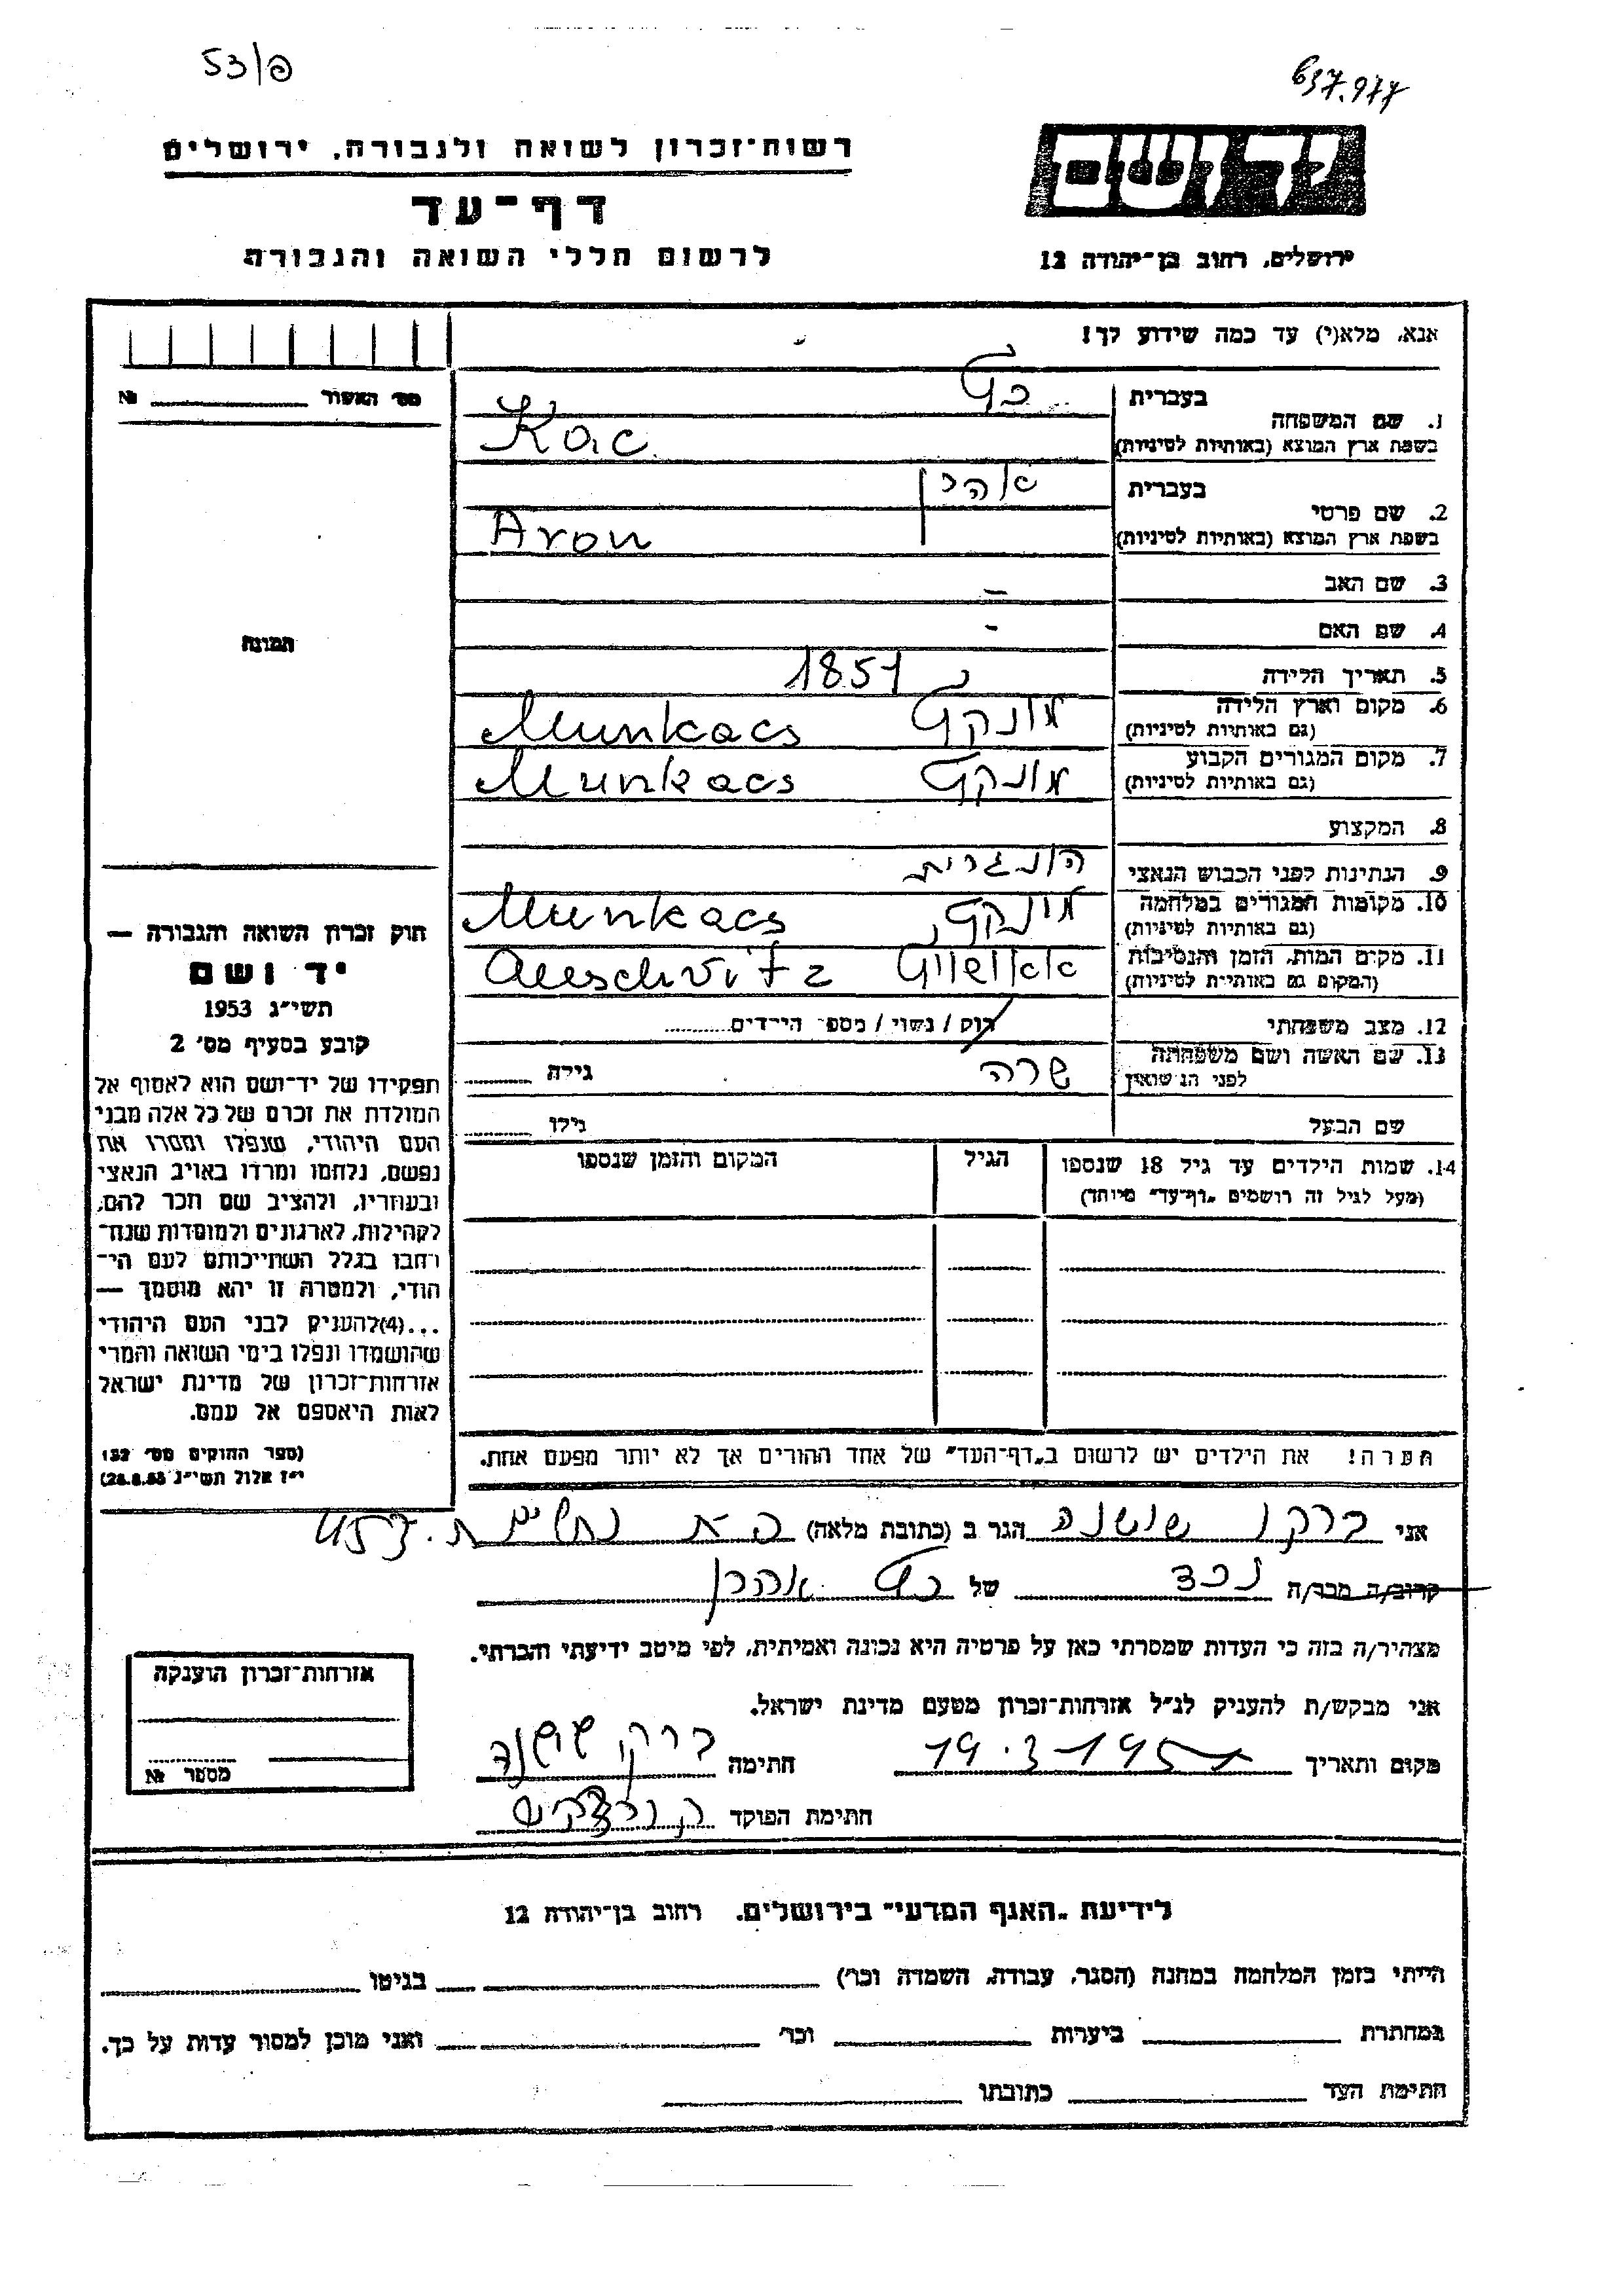 53/פ
637.977
יד ושם
ירושלים, רחוב בן-יהודה 12
רשות-זכרון לשואה ולגבורה, ירושלים
דף-עד
לרשום חללי השואה והגבורה
אנא, מלא(י) עד כמה שידוע לך!
מס' האשור № 
1. שם המשפחה
בעברית כץ
בשפת ארץ המוצא (באותיות לטיניות) Kac
2. שם פרטי
בעברית אהרן
בשפת ארץ המוצא (באותיות לטיניות) Aron
3. שם האב -
4. שם האם -
5. תאריך הלידה 1851
6. מקום וארץ הלידה מונקץ Munkacs
(גם באותיות לטיניות)
7. מקום המגורים הקבוע מונקץ Munkacs
(גם באותיות לטיניות)
8. המקצוע
9. הנתינות לפני הכבוש הנאצי הונגרית
10. מקומות המגורים במלחמה מונקץ Munkacs
(גם באותיות לטיניות)
11. מקום המות, הזמן והנסיבות אאושוויץ Auschvitz
(המקום גם באותיות לטיניות)
12. מצב משפחתי רוק / נשוי / מספר הילדים
13. שם האשה ושם משפחתה שרה גילה
לפני הנשואין
שם הבעל גילו
14. שמות הילדים עד גיל 18 שנספו הגיל המקום והזמן שנספו
(מעל לגיל זה רושמים "דף-עד" מיוחד)
הערה! את הילדים יש לרשום ב"דף-העד" של אחד ההורים אך לא יותר מפעם אחת.
תמונה
חוק זכרון השואה והגבורה —
יד ושם
תשי"ג 1953
קובע בסעיף מס' 2
תפקידו של יד-ושם הוא לאסוף אל
המולדת את זכרם של כל אלה מבני
העם היהודי, שנפלו ומסרו את
נפשם, נלחמו ומרדו באויב הנאצי
ובעוזריו, ולהציב שם וזכר להם,
לקהילות, לארגונים ולמוסדות שנח-
רבו בגלל השתייכותם לעם הי-
הודי, ולמטרה זו יהא מוסמך —
...(4)להעניק לבני העם היהודי
שהושמדו ונפלו בימי השואה והמרי
אזרחות-זכרון של מדינת ישראל
לאות היאספם אל עמם.
(ספר החוקים מס' 132
י"ז אלול תשי"ג 28.8.53)
אני ברקו שושנה הגר ב (כתובת מלאה)
קרוב/ה מכר/ה נכד של כץ אהרן
מצהיר/ה בזה כי העדות שמסרתי כאן על פרטיה היא נכונה ואמיתית, לפי מיטב ידיעתי והכרתי.
אני מבקש/ת להעניק לנ"ל אזרחות-זכרון מטעם מדינת ישראל.
מקום ותאריך 19.3.1957 חתימה ברקו שושנה
חתימת הפוקד
אזרחות-זכרון הוענקה
מספר №
לידיעת "האגף המדעי" בירושלים, רחוב בן-יהודה 12
הייתי בזמן המלחמה במחנה (הסגר, עבודה, השמדה וכו') בגיטו
במחתרת ביערות וכו' ואני מוכן למסור עדות על כך.
חתימת העד כתובתו